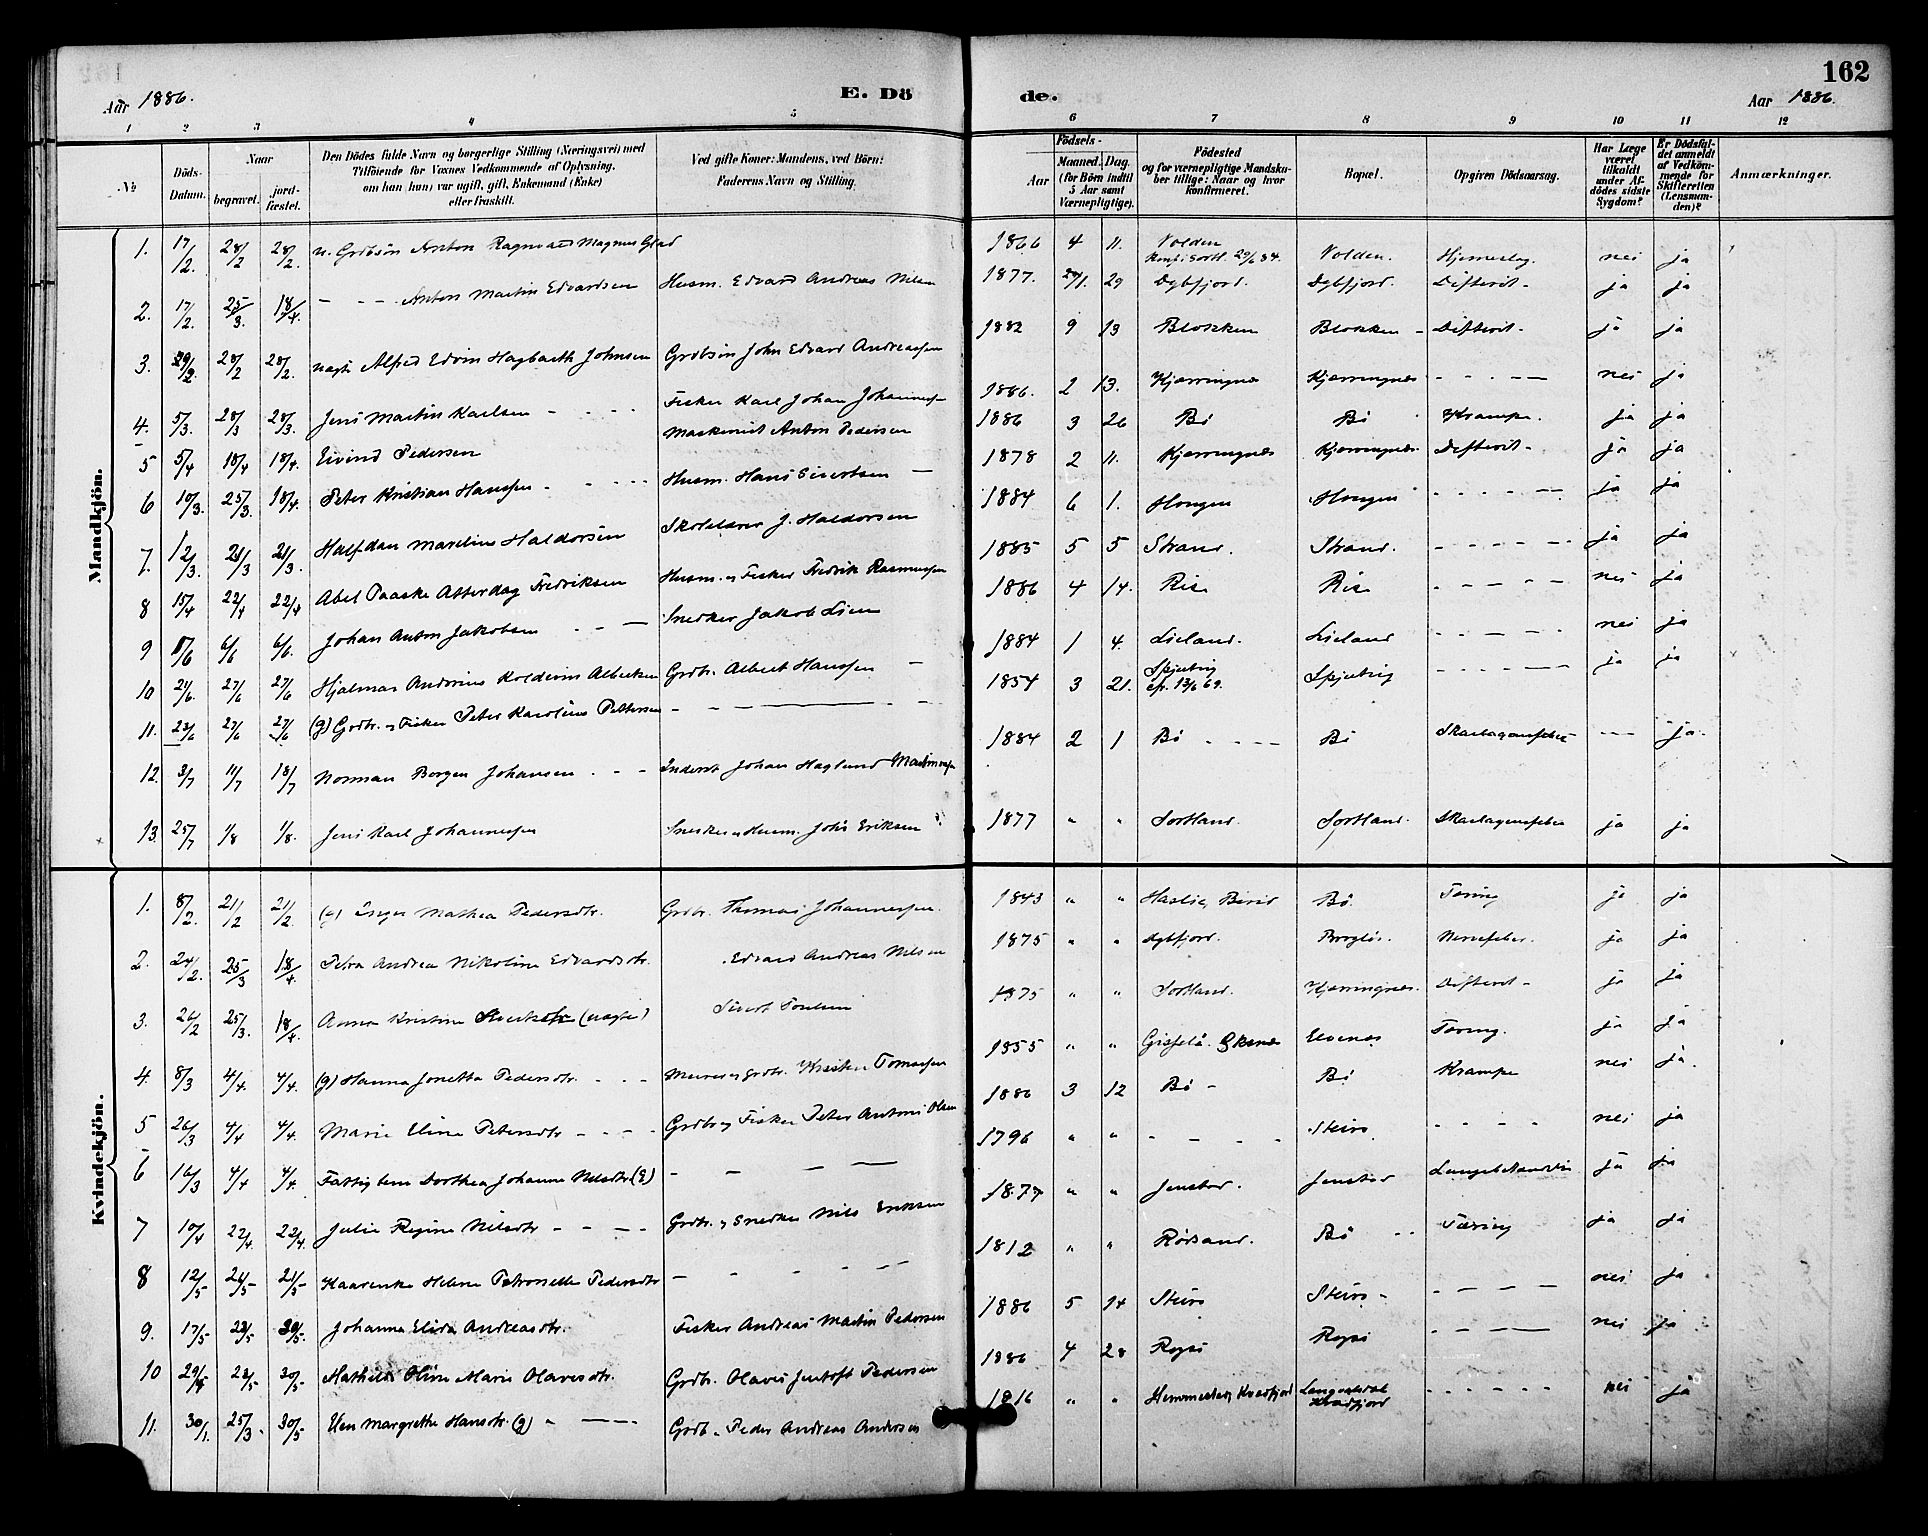 162
Aar 1886.
E. Dö
de.
Aar 1886.
1 2 3 4 5 6 7 8 9 10 11 12
No
Döds-Datum.
Naar
begravet.
jord-fæstet.
Den Dödes fulde Navn og borgerlige Stilling (Næringsvei) med
Tilföiende for Voxnes Vedkommende af Oplysning,
om han (hun) var ugift, gift, Enkemand (Enke)
eller fraskilt.
Ved gifte Koner: Mandens, ved Börn:
Faderens Navn og Stilling.
Födsels-
Aar
Maaned. Dag.
(for Börn indtil
5 Aar samt
Værnepligtige).
Födested
og for værnepligtige Mandska-
ber tillige: Naar og hvor
konfirmeret.
Bopæl.
Opgiven Dödsaarsag.
Har Læge
været
tilkaldt
under Af-
dödes sidste
Sygdom?
Er Dödsfal-
det anmeldt
af Vedkom-
mende for
Skifteretten
(Lensman-
den)?
Anmærkninger.
Mandkjön.
1. 17/2. 28/2 28/2. u. Grdbsön Anton Ragnvald Magnus Glad 1866 4 11. Volden Konf. i Sortl. 29/6 84. Volden. nei ja
2. 17/2. 25/3. 18/4. - - - Anton Martin Edvardsen Husm. Edvard Andreas Nilsen 1877. 29 Dybfjord. Dybfjord. Difterit- ja ja
3. 28/2 28/2. Alfred Edvin Hagbarth Johnsen Grdbsön John Edvard Andreassen 1882 9 13 Blokken Blokken - Difterit- ja ja
4. 5/3. 28/3 28/3. Jens Martin Karlsen - - - - Fisker Karl Johan Johannessen 1886. 2 13. Kjærringnes Kjærringnes - - - - nei ja
5 5/4 18/4 18/4. Eivind Pedersen Maskinist Anton Pedersen 1886 3 26 Bö Bö Krampe. ja ja
6 10/3. 25/3. 18/4. Peter Kristian Hanssen - - - - Husm. Hans Sivertsen - 1878 2 11. Kjærringnes Kjærringnes. Difterit- ja ja
7. 12/3. 21/3 21/3. Halfdan Marelius Haldorsen Skolelærer J. Haldorsen 1884 6 1. Hougen Hougen - - - - - ja ja
8 15/4 22/4 22/4 Abel Paaske Atterdag Fredriksen Husm. og Fisker Fredrik Rasmussen 1885 5 5 Strand. Strand. - - - - - ja ja
9 6/6 6/6. Johan Anton Jakobsen - - - Snedker Jakob Lien 1886 4 14. Ris Ris - - - - nei ja
10 21/6. 27/6 27/6 Hjalmar Andreas Koldevin Albertsen Grdbr. Albert Hanssen - 1884 1 4. Lieland. Lieland - - - - nei ja
11. 23/6 27/6 27/6 (g) Grdbr. og Fisker Peter Karolius Pettersen - - - - - 1854 3 21. Spjutvig 13/6 69. Spjutvig - - - - ja ja
12. 3/7 11/7 18/7 Norman Borgen Johansen - - - Inderst Johan Haglund 1884 2 1 Bö - - - - Bö Skarlagensfeber - - - ja.
13. 25/7 1/8 1/8. Jens Karl Johannessen Snedker og Husm. Johs Eriksen 1877 " " Sortland. Sortland. Skarlagensfeber ja ja
Kvindekjön.
1. 8/2. 21/2 21/2. (g) Inger Mathea Pedersdtr. Grdbr. Thomas Johannessen. 1843 " " Bö. Tæring ja ja
2. 24/2. 25/3 18/4 Petra Andrea Nikoline Edvardsdtr. Edvard Andreas Nilsen 1875 " " Dybfjord. Nervefeber. ja ja
3. 26/2 25/3. 18/4. Anna Kristine (uægte) Sivert 1875 " " Sortland. Kjærringnes. Difterit- ja ja
4. 8/3 4/4 4/4. (g) Hanna Jonetta Pedersdtr. - - - Murer og Grdbr. Tomassen 1855 " " Elvenes Tæring. ja ja
5 26/3 4/4 4/4. Marie Eline Petersdtr - - - - Grdbr og Fisker Peter Antoni Olsen 1886 3 12 Bö - Bö Krampe nei ja.
6 16/3 4/4 4/4. Fattiglem Dorthea Johanna Nilsdtr (E) - - - - 1796 " " - - - - Steiro - - - - nei ja
7 10/4 22/4. 22/4. Julie Regine Nilsdtr - - - - Grdbr. og Snedker Nils Eriksen 1877 " " Jenstad. Jenstad Lungebetændelse ja ja
8 12/5 21/5 21/5 Kaarenke Helene Petronelle Pedersdtr - - - - - 1812 " " Rödsand. Bö - - Tæring ja ja
9. 17/5 Johanna Elida Andreasdtr. Fisker Andreas Martin Pedersen 1886 5 14 Steiro Steiro - - - - nei ja
10 30/5 Mathilde Oline Marie Olavesdtr. Grdbr. Olaves Jentoft Pedersen 1886 4 28 - - - - nei ja
11. 30/1. 25/3. 30/5 Elen Margrethe Hansdtr. (g) - - - - Grdb. Peder Andreas Andersen 1816 " " Hemmestad, Kvædfjord Kvædfjord - - - - - nei ja